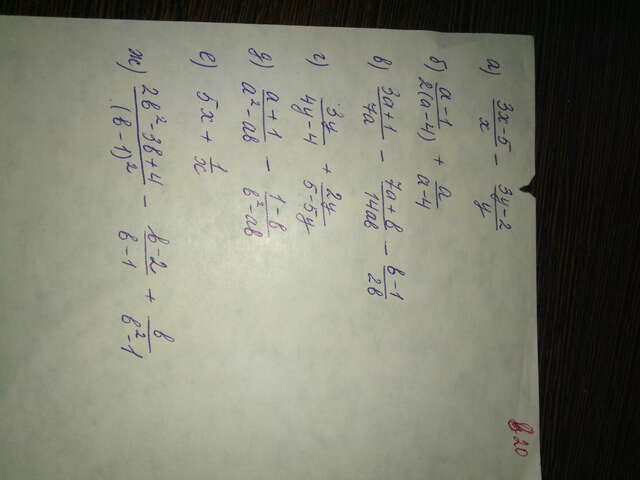 В 20
а) (3x-5)/x - (3y-2)/y
б) (a-1)/(2(a-4)) + a/(a-4)
в) (3a+1)/(7a) - (7a+b)/(14ab) - (b-1)/(2b)
г) (3y)/(4y-4) + (2y)/(5-5y)
д) (a+1)/(a²-ab) - (1-b)/(b²-ab)
е) 5x + 1/x
ж) (2b²-3b+4)/((b-1)²) - (b-2)/(b-1) + b/(b²-1)